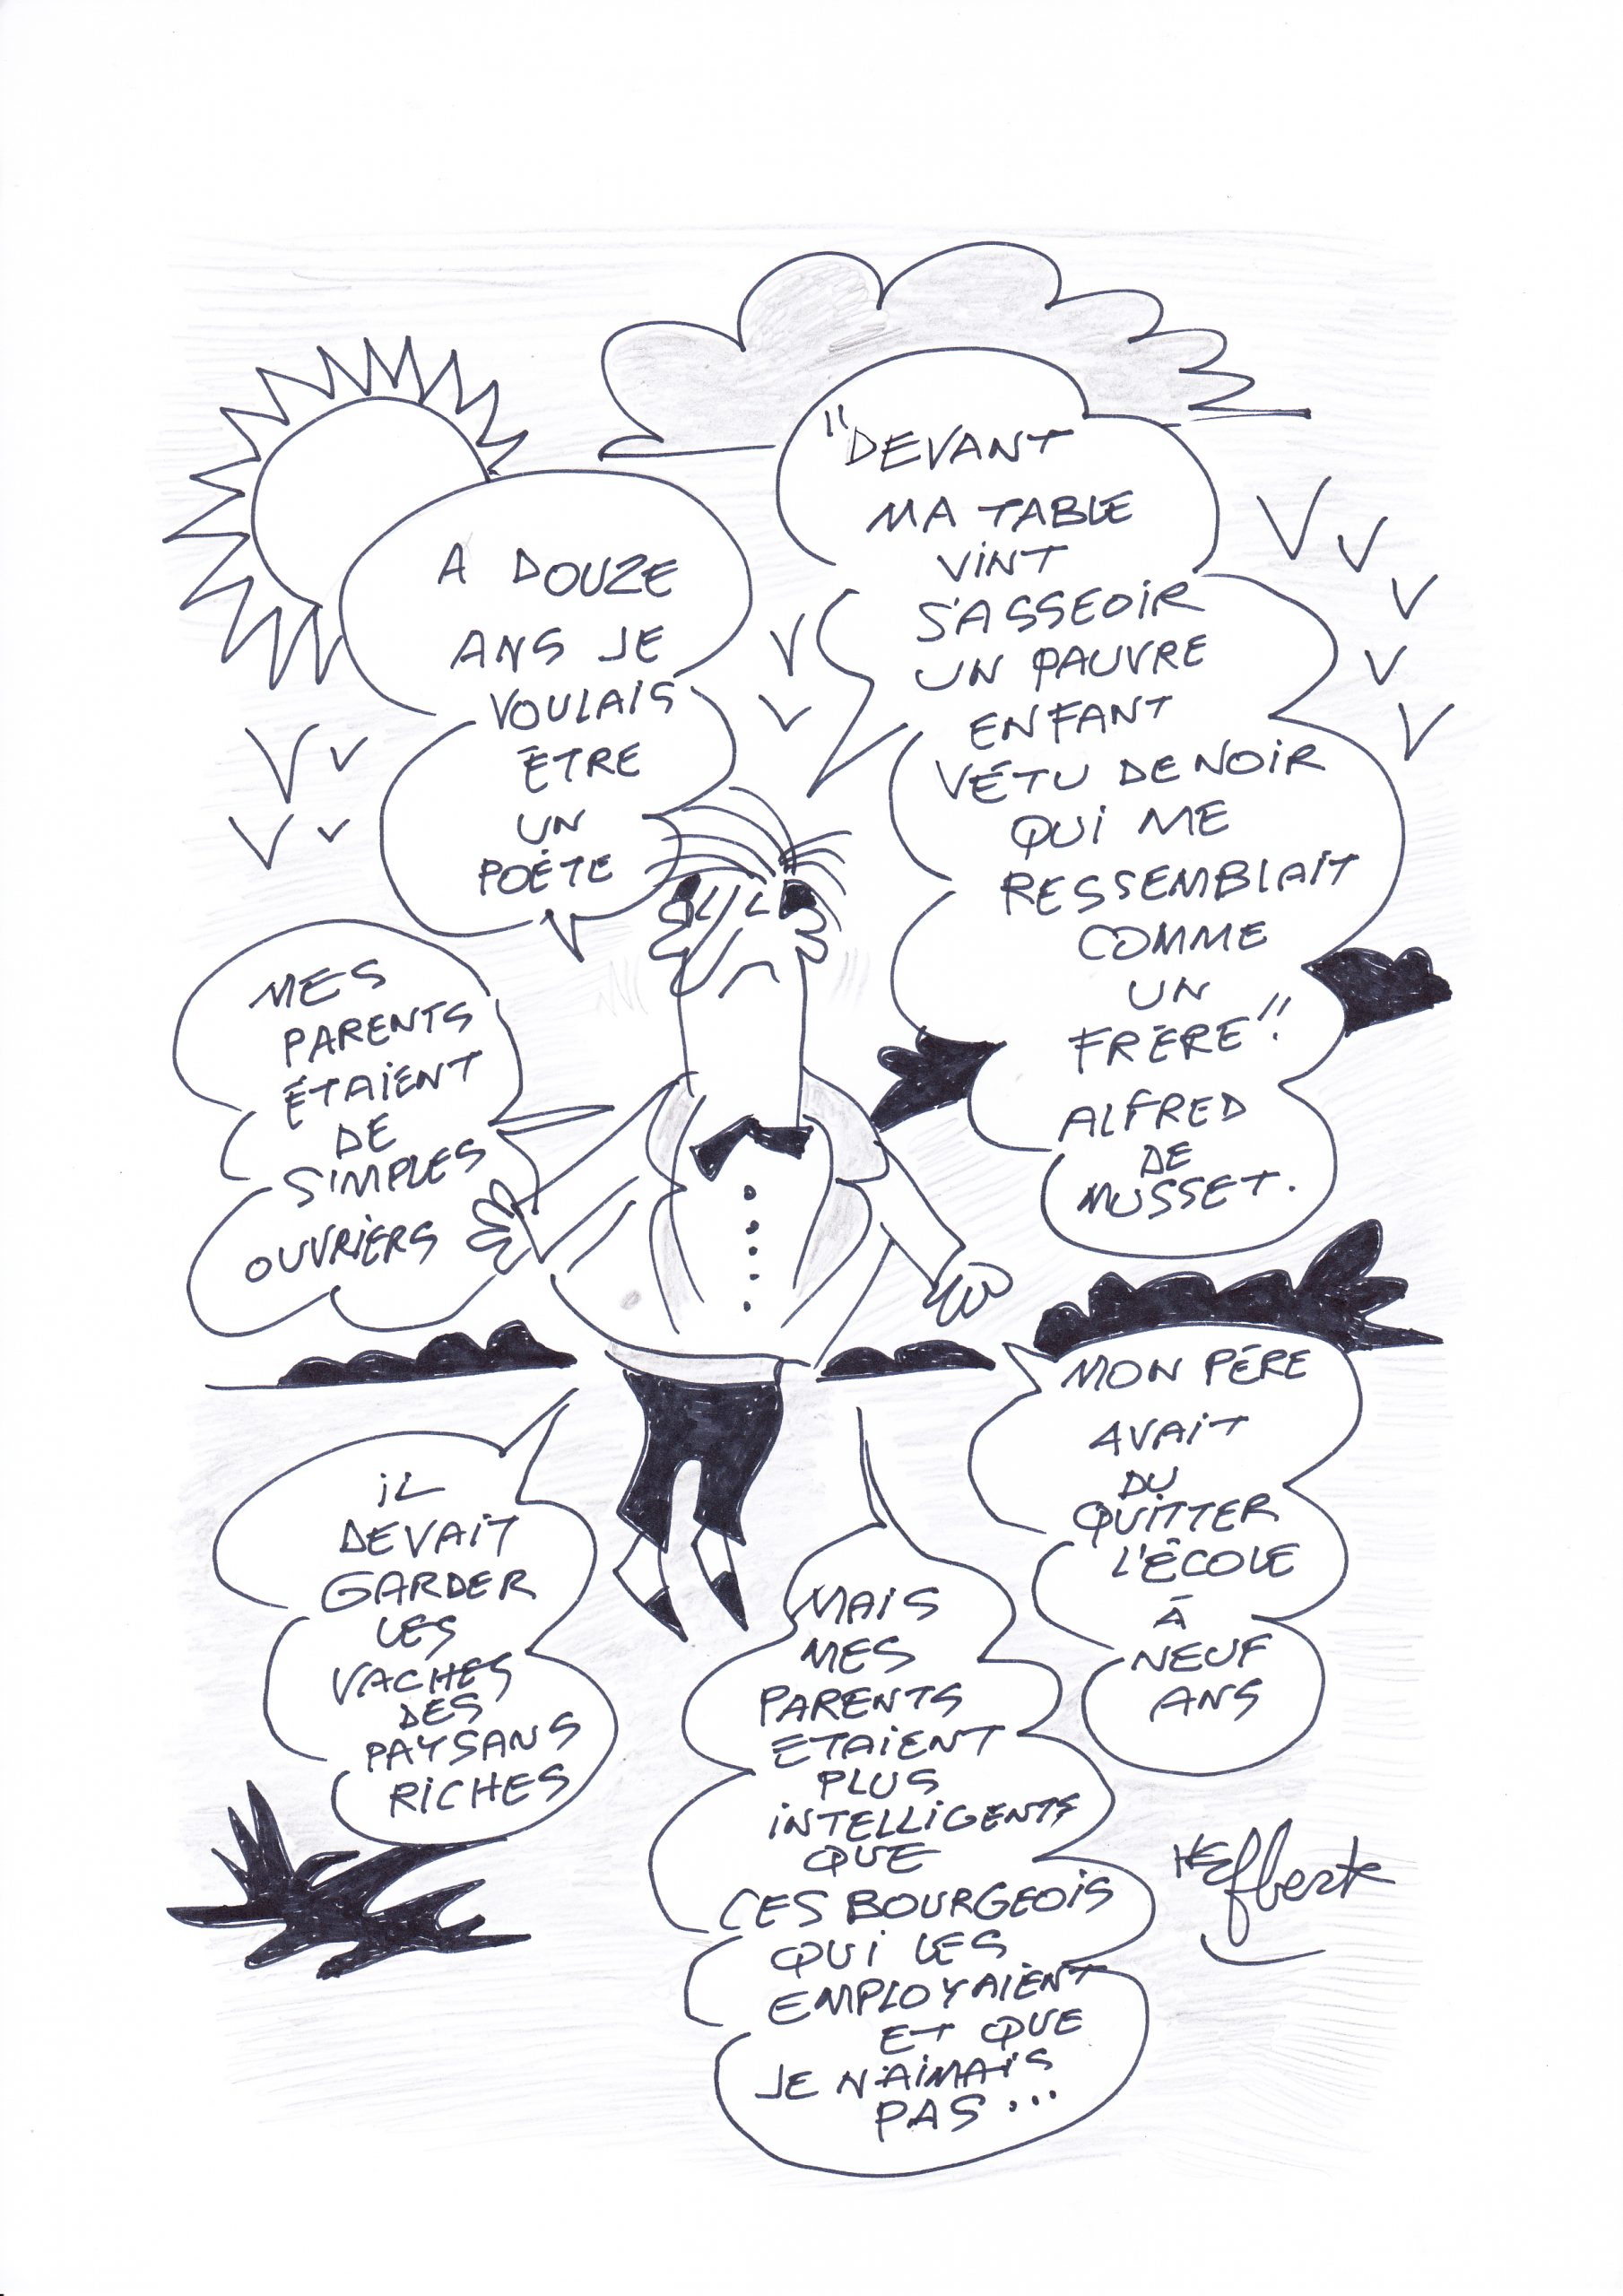 A DOUZE
ANS JE
VOULAIS
ÊTRE
UN
POÈTE
"DEVANT
MA TABLE
VINT
S'ASSEOIR
UN PAUVRE
ENFANT
VÊTU DE NOIR
QUI ME
RESSEMBLAIT
COMME
UN
FRÈRE"!
ALFRED
DE
MUSSET.
MES
PARENTS
ÉTAIENT
DE
SIMPLES
OUVRIERS
MON PÈRE
AVAIT
DU
QUITTER
L'ÉCOLE
À
NEUF
ANS
IL
DEVAIT
GARDER
LES
VACHES
DES
PAYSANS
RICHES
MAIS
MES
PARENTS
ETAIENT
PLUS
INTELLIGENTS
QUE
CES BOURGEOIS
QUI LES
EMPLOYAIENT
ET QUE
JE N'AIMAIS
PAS...